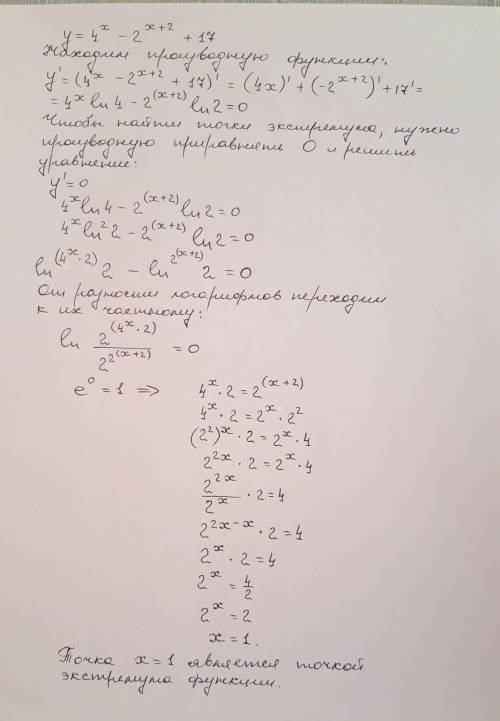 y = 4^x - 2^(x+2) + 17
Находим производную функции:
y' = (4^x - 2^(x+2) + 17)' = (4x)' + (-2^(x+2))' + 17' =
= 4^x ln 4 - 2^(x+2) ln 2 = 0
Чтобы найти точки экстремума, нужно
производную приравнять 0 и решить
уравнение:
y' = 0
4^x ln 4 - 2^(x+2) ln 2 = 0
4^x ln 2^2 - 2^(x+2) ln 2 = 0
ln 2^(4^x · 2) - ln 2^(2^(x+2)) = 0
От разности логарифмов переходим
к их частному:
ln (2^(4^x · 2) / 2^(2^(x+2))) = 0
e^0 = 1 ⇒ 4^x · 2 = 2^(x+2)
4^x · 2 = 2^x · 2^2
(2^2)^x · 2 = 2^x · 4
2^(2x) · 2 = 2^x · 4
2^(2x) / 2^x · 2 = 4
2^(2x-x) · 2 = 4
2^x · 2 = 4
2^x = 4/2
2^x = 2
x = 1.
Точка x = 1 является точкой
экстремума функции.